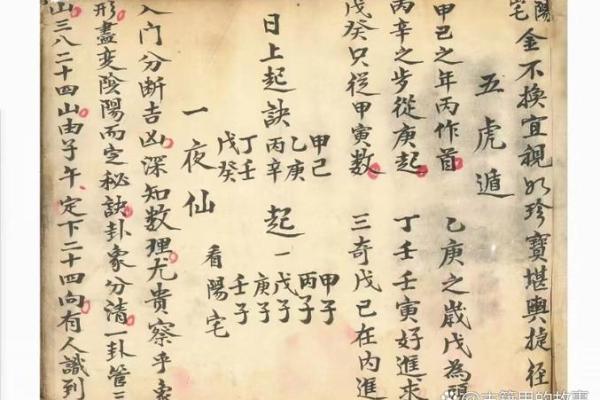 陽宅
金不換宜視如珍寶堪輿捷徑
五虎遁
甲己之年丙作首 乙庚之歲戊為頭
丙辛之步從庚起 丁壬壬寅好進求
戊癸只從甲寅數 三奇戊己在內進
日上起訣
甲己 甲子
乙庚 丙子
丙辛 起一 戊子
丁壬 庚子
戊癸 壬子
一夜仙 看陽宅
入门分断吉凶深知数理尤貴察乎
形盡变陰陽而定秘訣卦象分清一卦管三
山三八二十四山由子午定下二十四向有人識到